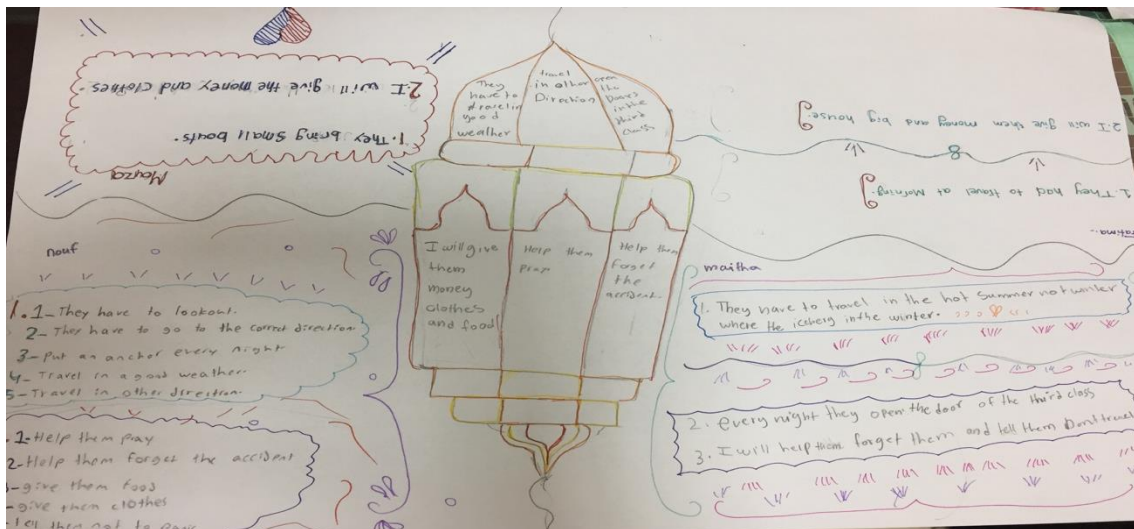 2. I will give the money and clothes.
1. They bring small boats.
They
have to
travel in
good
weather
travel
in other
Direction
open
the
Doores
in the
third
class
2. I will give them money and big house.
1. They had to travel at Morning.
nouf
1. 1- They have to lookout.
2- They have to go to the correct direction
3- Put an anchor every night
4- Travel in a good weather.
5- Travel in other direction.
1- Help them pray
2- Help them forget the accident
give them food
-give them clothes
tell them not to
I will give
them
money
clothes
and food
Help them
pray
Help them
forget
the
accident.
maitha
1. They have to travel in the hot summer not winter
where the iceberg in the winter.
2. every night they open the door of the third class
3. I will help them forget them and tell them Dont travel